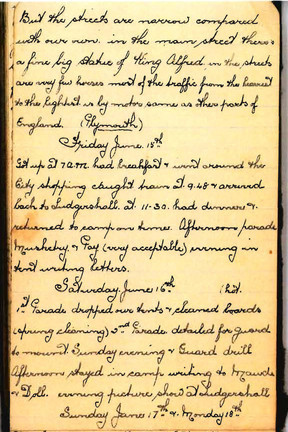 But the streets are narrow compared
with our own. in the main street there's
a fine big statue of King Alfred. in the streets
are very few horses most of the traffic from the heaviest
to the lightest is by motor same as other parts of
England. (Plymouth)
Friday June. 15th
Got up at 7 a.m. had breakfast & went around the
City shopping caught train at 9.48 & arrived
back to Ludgershall. at 11-30. had dinner &
returned to camp on time. Afternoon parade
Musketry & Pay (very acceptable) evening in
tent writing letters.
Saturday. June 16th (hot.
1st Parade dropped our tents & cleaned boards
(spring cleaning) 2nd Parade detailed for guard
to mount. Sunday evening & Guard drill
Afternoon stayed in camp writing to Maude
& Doll. evening picture show at Ludgershall
Sunday June 17th & Monday 18th